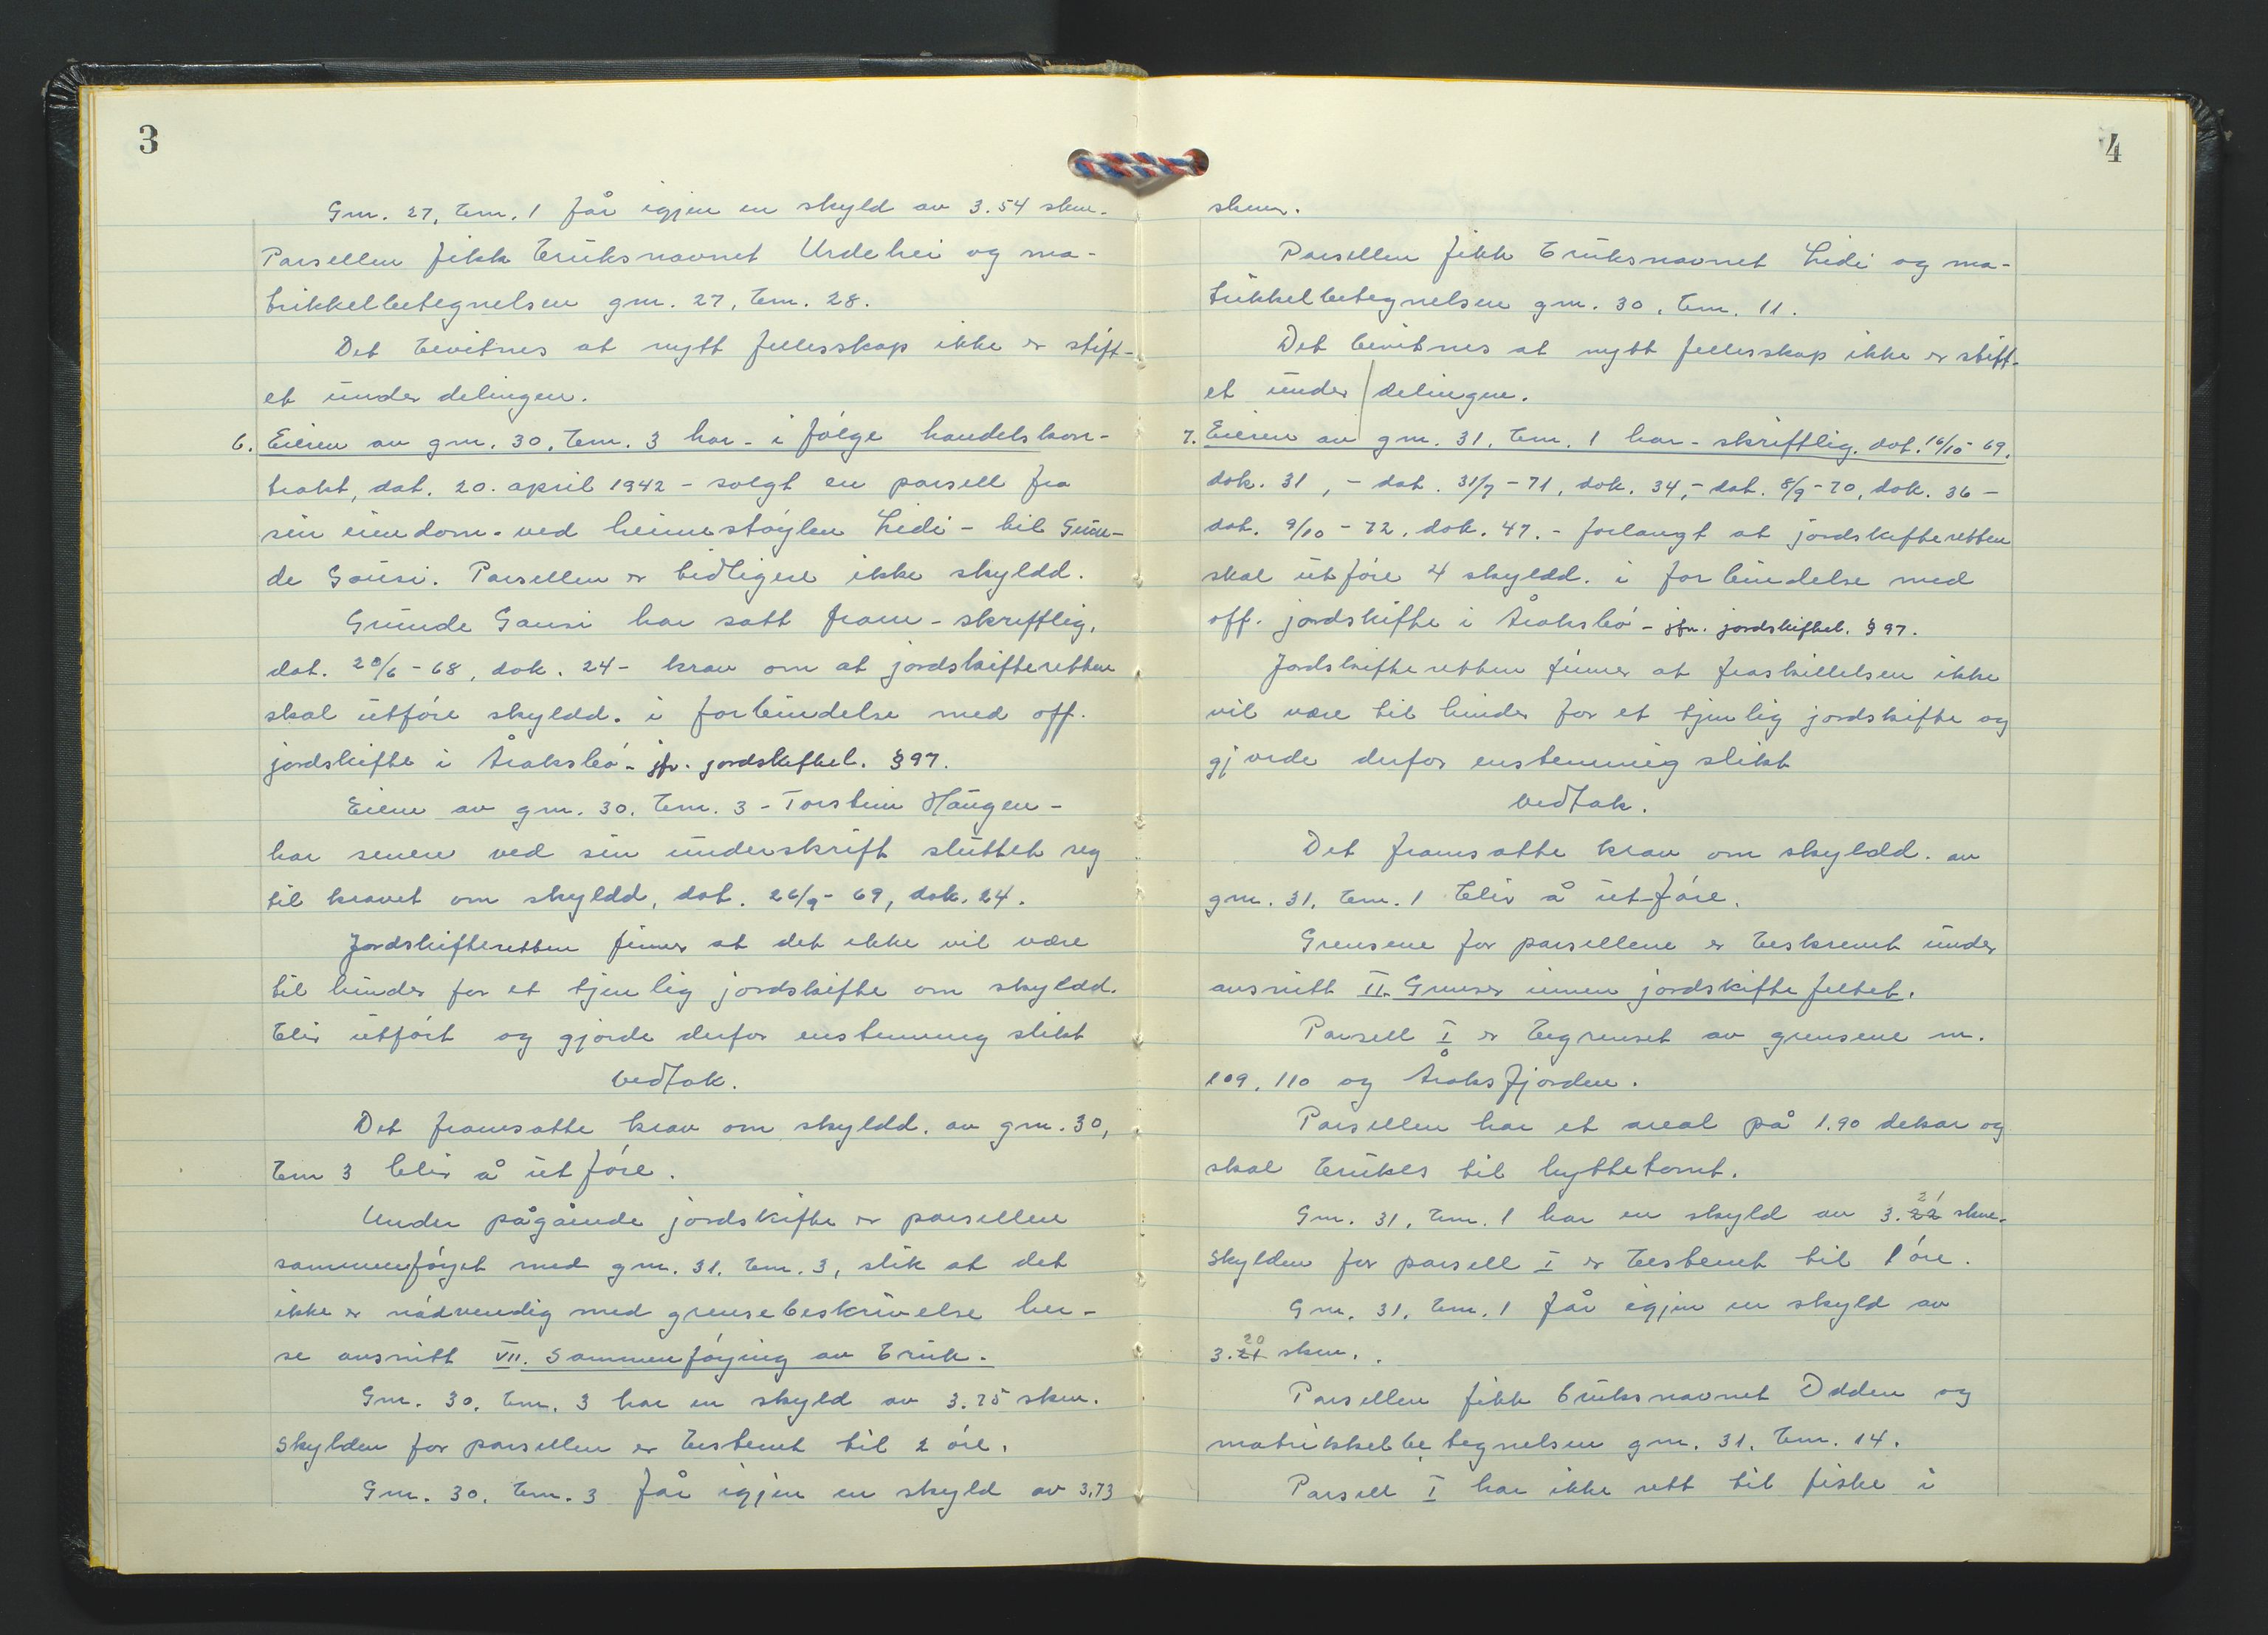 3
Gnr. 27, bnr. 1 får igjen en skyld av 3.54 skm.
Parsellen fikk bruksnavnet Urdehei og ma-
trikkelbetegnelsen gnr. 27, bnr. 28.
Det bevitnes at nytt fellesskap ikke er stift-
et under delingen.
6. Eieren av gnr. 30, bnr. 3 har - i følge handelskon-
trakt, dat. 20. april 1942 - solgt en parsell fra
sin eiendom - ved heimestøylen Lidi - til Gun-
de Gausi. Parsellen er tidligere ikke skyldd.
Gunde Gausi har satt fram - skriftlig,
dat. 20/6 - 68, dok. 24 - krav om at jordskifteretten
skal utføre skyldd. i forbindelse med off.
jordskifte i Åraksbø - jfr. jordskiftel. § 97.
Eieren av gnr. 30, bnr. 3 - Torstein Haugen -
har senere ved sin underskrift sluttet seg
til kravet om skyldd, dat. 26/9 - 69, dok. 24.
Jordskifteretten finner at det ikke vil være
til hinder for et tjenlig jordskifte om skyldd.
blir utført og gjorde derfor enstemmig slikt
vedtak.
Det framsatte krav om skyldd. av gnr. 30,
bnr 3 blir å utføre.
Under pågående jordskifte er parsellen
sammenføyet med gnr. 31, bnr. 3, slik at det
ikke er nødvendig med grensebeskrivelse her -
se avsnitt VII. Sammenføying av bruk.
Gnr. 30, bnr. 3 har en skyld av 3.75 skm.
Skylden for parsellen er bestemt til 2 øre.
Gnr. 30, bnr. 3 får igjen en skyld av 3,73
4
skm.
Parsellen fikk bruksnavnet Lidi og ma-
trikkelbetegnelsen gnr. 30, bnr. 11.
Det bevitnes at nytt fellesskap ikke er stift-
et under delingen.
7. Eieren av gnr. 31, bnr. 1 har - skriftlig, dat. 16/10 - 69,
dok. 31, - dat. 31/7 - 71, dok. 34, - dat. 8/9 - 70, dok. 36 -
dat. 9/10 - 72, dok. 47. - forlangt at jordskifteretten
skal utføre 4 skyldd. i forbindelse med
off. jordskifte i Åraksbø - jfr. jordskiftel. § 97.
Jordskifteretten finner at fraskillelsen ikke
vil være til hinder for et tjenlig jordskifte og
gjorde derfor enstemmig slikt
vedtak.
Det framsatte krav om skyldd. av
gnr. 31, bnr. 1 blir å utføre.
Grensene for parsellene er beskrevet under
avsnitt II. Grenser innen jordskiftefeltet.
Parsell I er begrenset av grensene nr.
109, 110 og Åraksfjorden.
Parsellen har et areal på 1.90 dekar og
skal brukes til hyttetomt.
21
Gnr. 31, bnr. 1 har en skyld av 3.22 skm.
Skylden for parsell I er bestemt til 1 øre.
Gnr. 31, bnr. 1 får igjen en skyld av
20
3.21 skm.
Parsellen fikk bruksnavnet Odden og
matrikkelbetegnelsen gnr. 31, bnr. 14.
Parsell I har ikke rett til fiske i